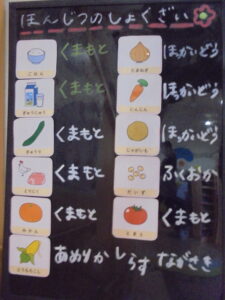 ほんじつのしょくざい
ごはん くまもと
ぎゅうにゅう くまもと
きゅうり くまもと
とりにく くまもと
みかん くまもと
とうもろこし あめりか
たまねぎ ほっかいどう
にんじん ほっかいどう
じゃがいも ほっかいどう
だいず ふくおか
とまと くまもと
しらす ながさき